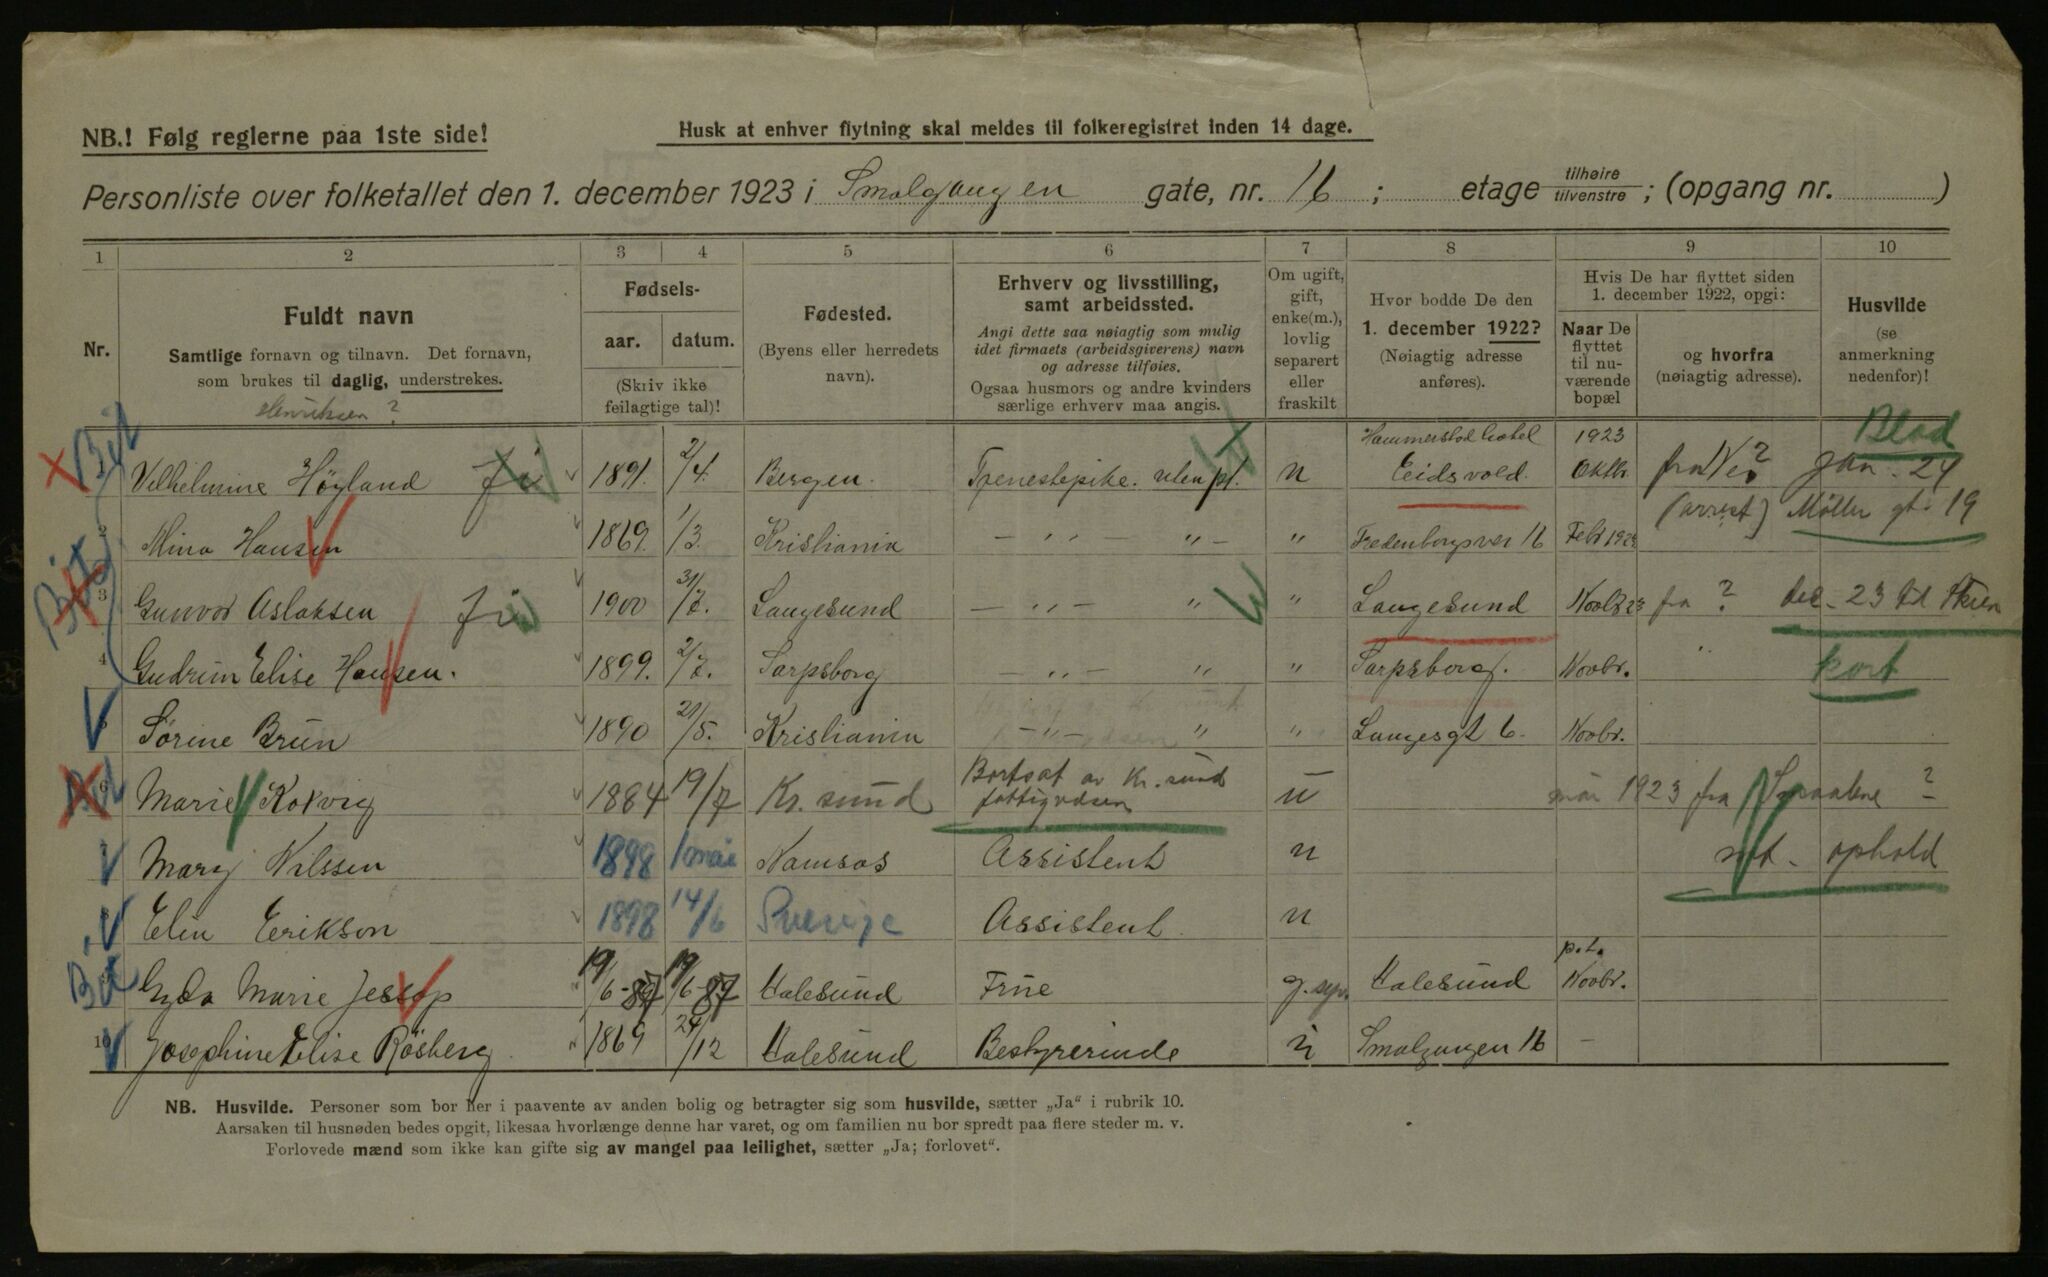 NB.! Følg reglerne paa 1ste side!
Husk at enhver flytning skal meldes til folkeregistret inden 14 dage.
Personliste over folketallet den 1. december 1923 i Smalgangen gate, nr. 16 ; etage tilhøire tilvenstre ; (opgang nr. )
1 2 3 4 5 6 7 8 9 10
Nr.
Fuldt navn
Samtlige fornavn og tilnavn. Det fornavn,
som brukes til daglig, understrekes.
Henriksen ?
Fødsels-
aar. datum.
(Skriv ikke
feilagtige tal)!
Fødested.
(Byens eller herredets
navn).
Erhverv og livsstilling,
samt arbeidssted.
Angi dette saa nøiagtig som mulig
idet firmaets (arbeidsgiverens) navn
og adresse tilføies.
Ogsaa husmors og andre kvinders
særlige erhverv maa angis.
Om ugift,
gift,
enke(m.),
lovlig
separert
eller
fraskilt
Hvor bodde De den
1. december 1922?
(Nøiagtig adresse
anføres).
Hvis De har flyttet siden
1. december 1922, opgi:
Naar De
flyttet
til nu-
værende
bopæl
og hvorfra
(nøiagtig adresse).
Husvilde
(se
anmerkning
nedenfor)!
Vilhelmine Høyland 1891. 2/4. Bergen. Tjenestepike. uten pl. u Hammerstad hotel Eidsvold. 1923 Oktbr. fra ? Blad Jan. 24
(arrest) Møller gt. 19
2 Mina Hansen 1869. 1/3. Kristiania — „ — „ — „ Fredenborgveien 16 Febr 1923
3 Gunvor Aslaksen 1900 31/7. Langesund — „ — „ „ Langesund Novbr 23 fra ? des. 23 til Skien
4 Gudrun Elise Hansen. 1899. 2/7. Sarpsborg — „ — „ „ Sarpsborg. Novbr. „ kort
5 Sørine Brun 1890 21/5. Kristiania — „ — „ „ Langesgt 6. Novbr.
6 Marie Kolvig 1884 19/7 Kr. sund Bortsat av Kr. sund fattigvæsen u mai 1923 fra Smaalene ?
7 Mary Nilssen 1898 Namsos Assistent u mt. ophold
8 Elin Erikson 1898 14/6 Sverige Assistent u
9 Gyda Marie Jessop 19/6-87 19/6-87 Aalesund Frue g. sep. Aalesund p.t. Novbr.
10 Josephine Elise Røsberg 1869 24/12 Aalesund Bestyrerinde u Smalgangen 16 —
NB. Husvilde. Personer som bor her i paavente av anden bolig og betragter sig som husvilde, sætter „Ja“ i rubrik 10.
Aarsaken til husnøden bedes opgit, likesaa hvorlænge denne har varet, og om familien nu bor spredt paa flere steder m. v.
Forlovede mænd som ikke kan gifte sig av mangel paa leilighet, sætter „Ja; forlovet“.